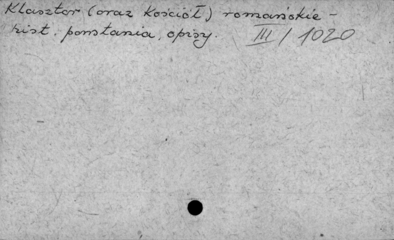 Klasztor (oraz Kościół) romańskie –
hist. powstania, opisy. III / 1020